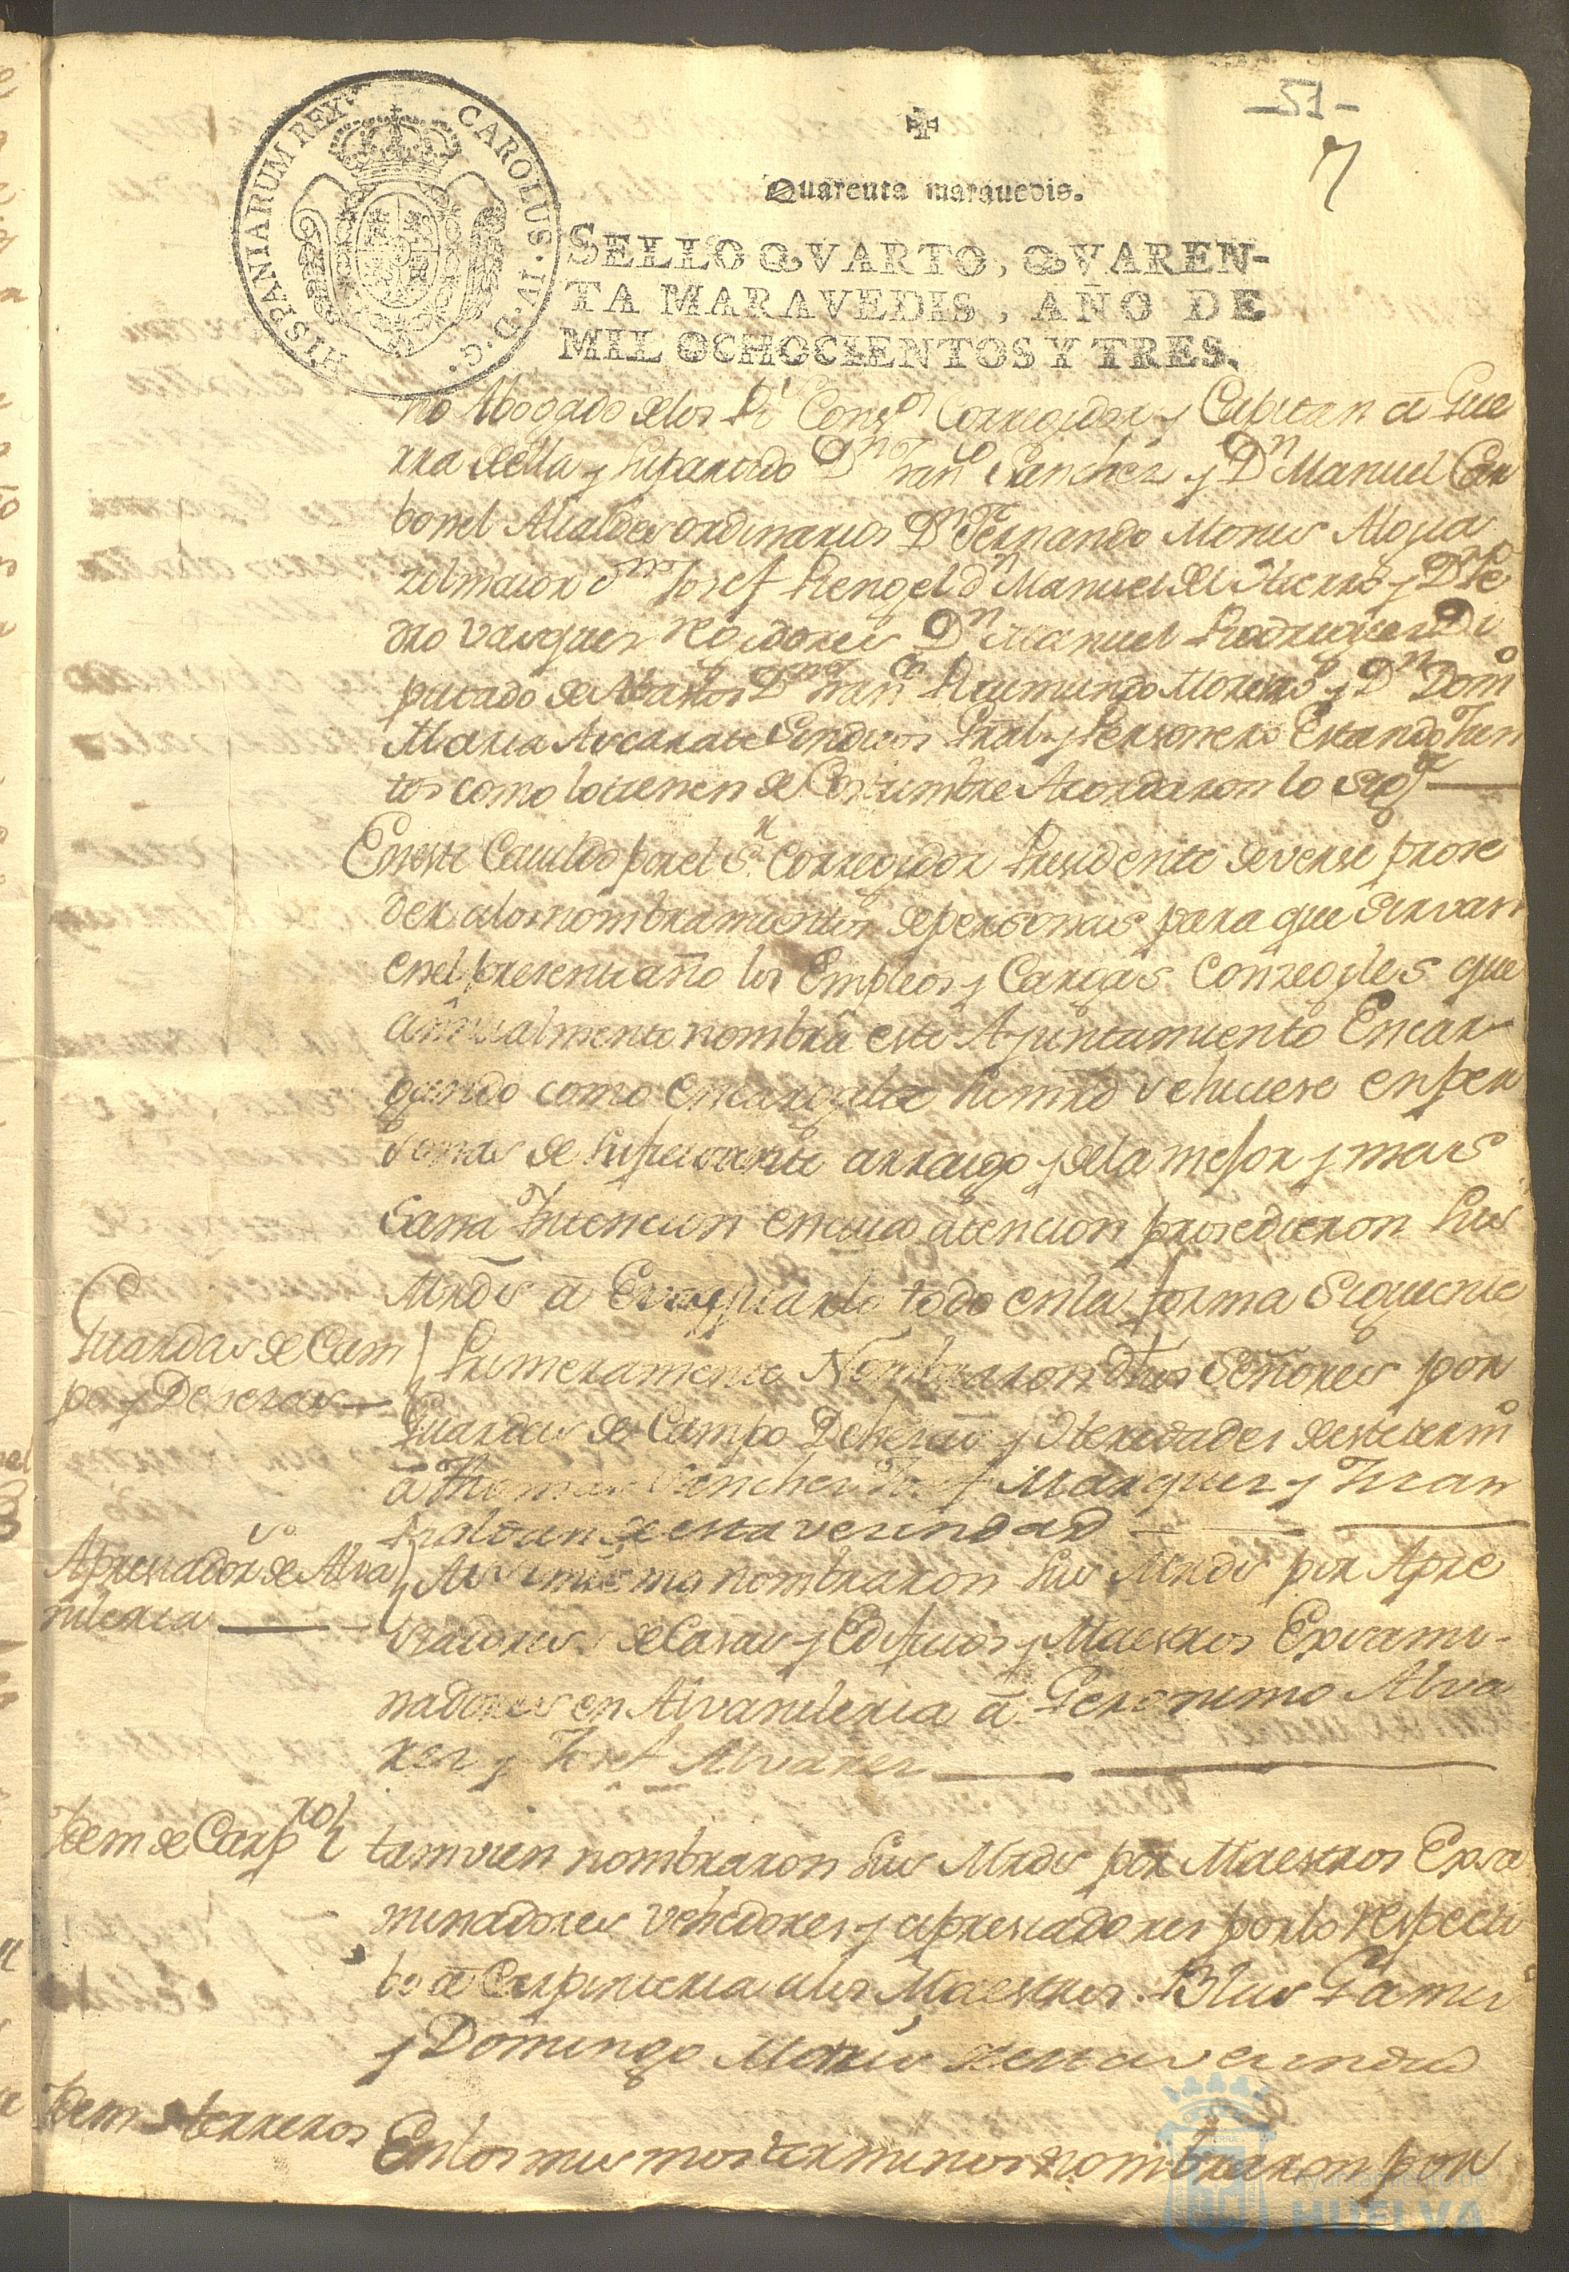 -51-
7
CAROLUS IV. D. G. HISPANIARUM REX
Quarenta maravedis.
SELLO QVARTO, QVAREN-
TA MARAVEDIS, AÑO DE
MIL OCHOCIENTOS Y TRES.
no Abogado de los Rs Consos Corregidor y Capitan a Gue
rra de ella y su partido Dn Franco Sanchez y Dn Manuel Car
bonel Alcaldes ordinarios Dn Fernando Mones Algua
cil maior Dn Josef Rengel dn Manuel del Hierro y Dn Pe
dro Vasques Regidores Dn Manuel Rodriguez Di
putado de Abastos Dn Franco Raimundo Moreno y Dn Domo
Maria Sindicos Pral y Personero Estando Jun
tos como lo tienen de Costumbre Acordaron lo sigte
En este Cavildo por el Sr Corregidor Presidente deverse prose
der a los nombramientos de personas para que sirvan
en el presente año los Empleos y Cargas Consegiles que
annualmente nombra este Ayuntamiento Encar-
gando como encargaba Su mrd se hiciese en per
sonas de suficiente arraigo y de la mejor y mas
sana Intencion en cuia atencion prosedieron Sus
Mrds a Evaquarlo todo en la forma siguiente
Guardas de Cam
po y Desesas
Primeramente Nombraron dhos Señores por
Guardas de Campo Dehesas y Heredades de este termo
a Thomas Sanchez Josef Marquez y Juan
Roldan de esta vecindad
Apresiadors de Alva
nileria
Asi mismo nombraron Sus Mrds por Apre
siadores de Casas y Edificios y Maestros Exsami-
nadores en Alvanileria a Geronimo Alva
rez y Josef Alvarez
Idem de Carpria
tamvien nombraron Sus Mrds por Maestros Exsa
minadores vehedores y apresiadores por lo respecti
bo a Carpinteria a los Maestros Blas Gamis
y Domingo Mones de esta vecindad
Idem Herreros
En los mismos terminos nombraron por
Ayuntamiento de
HUELVA